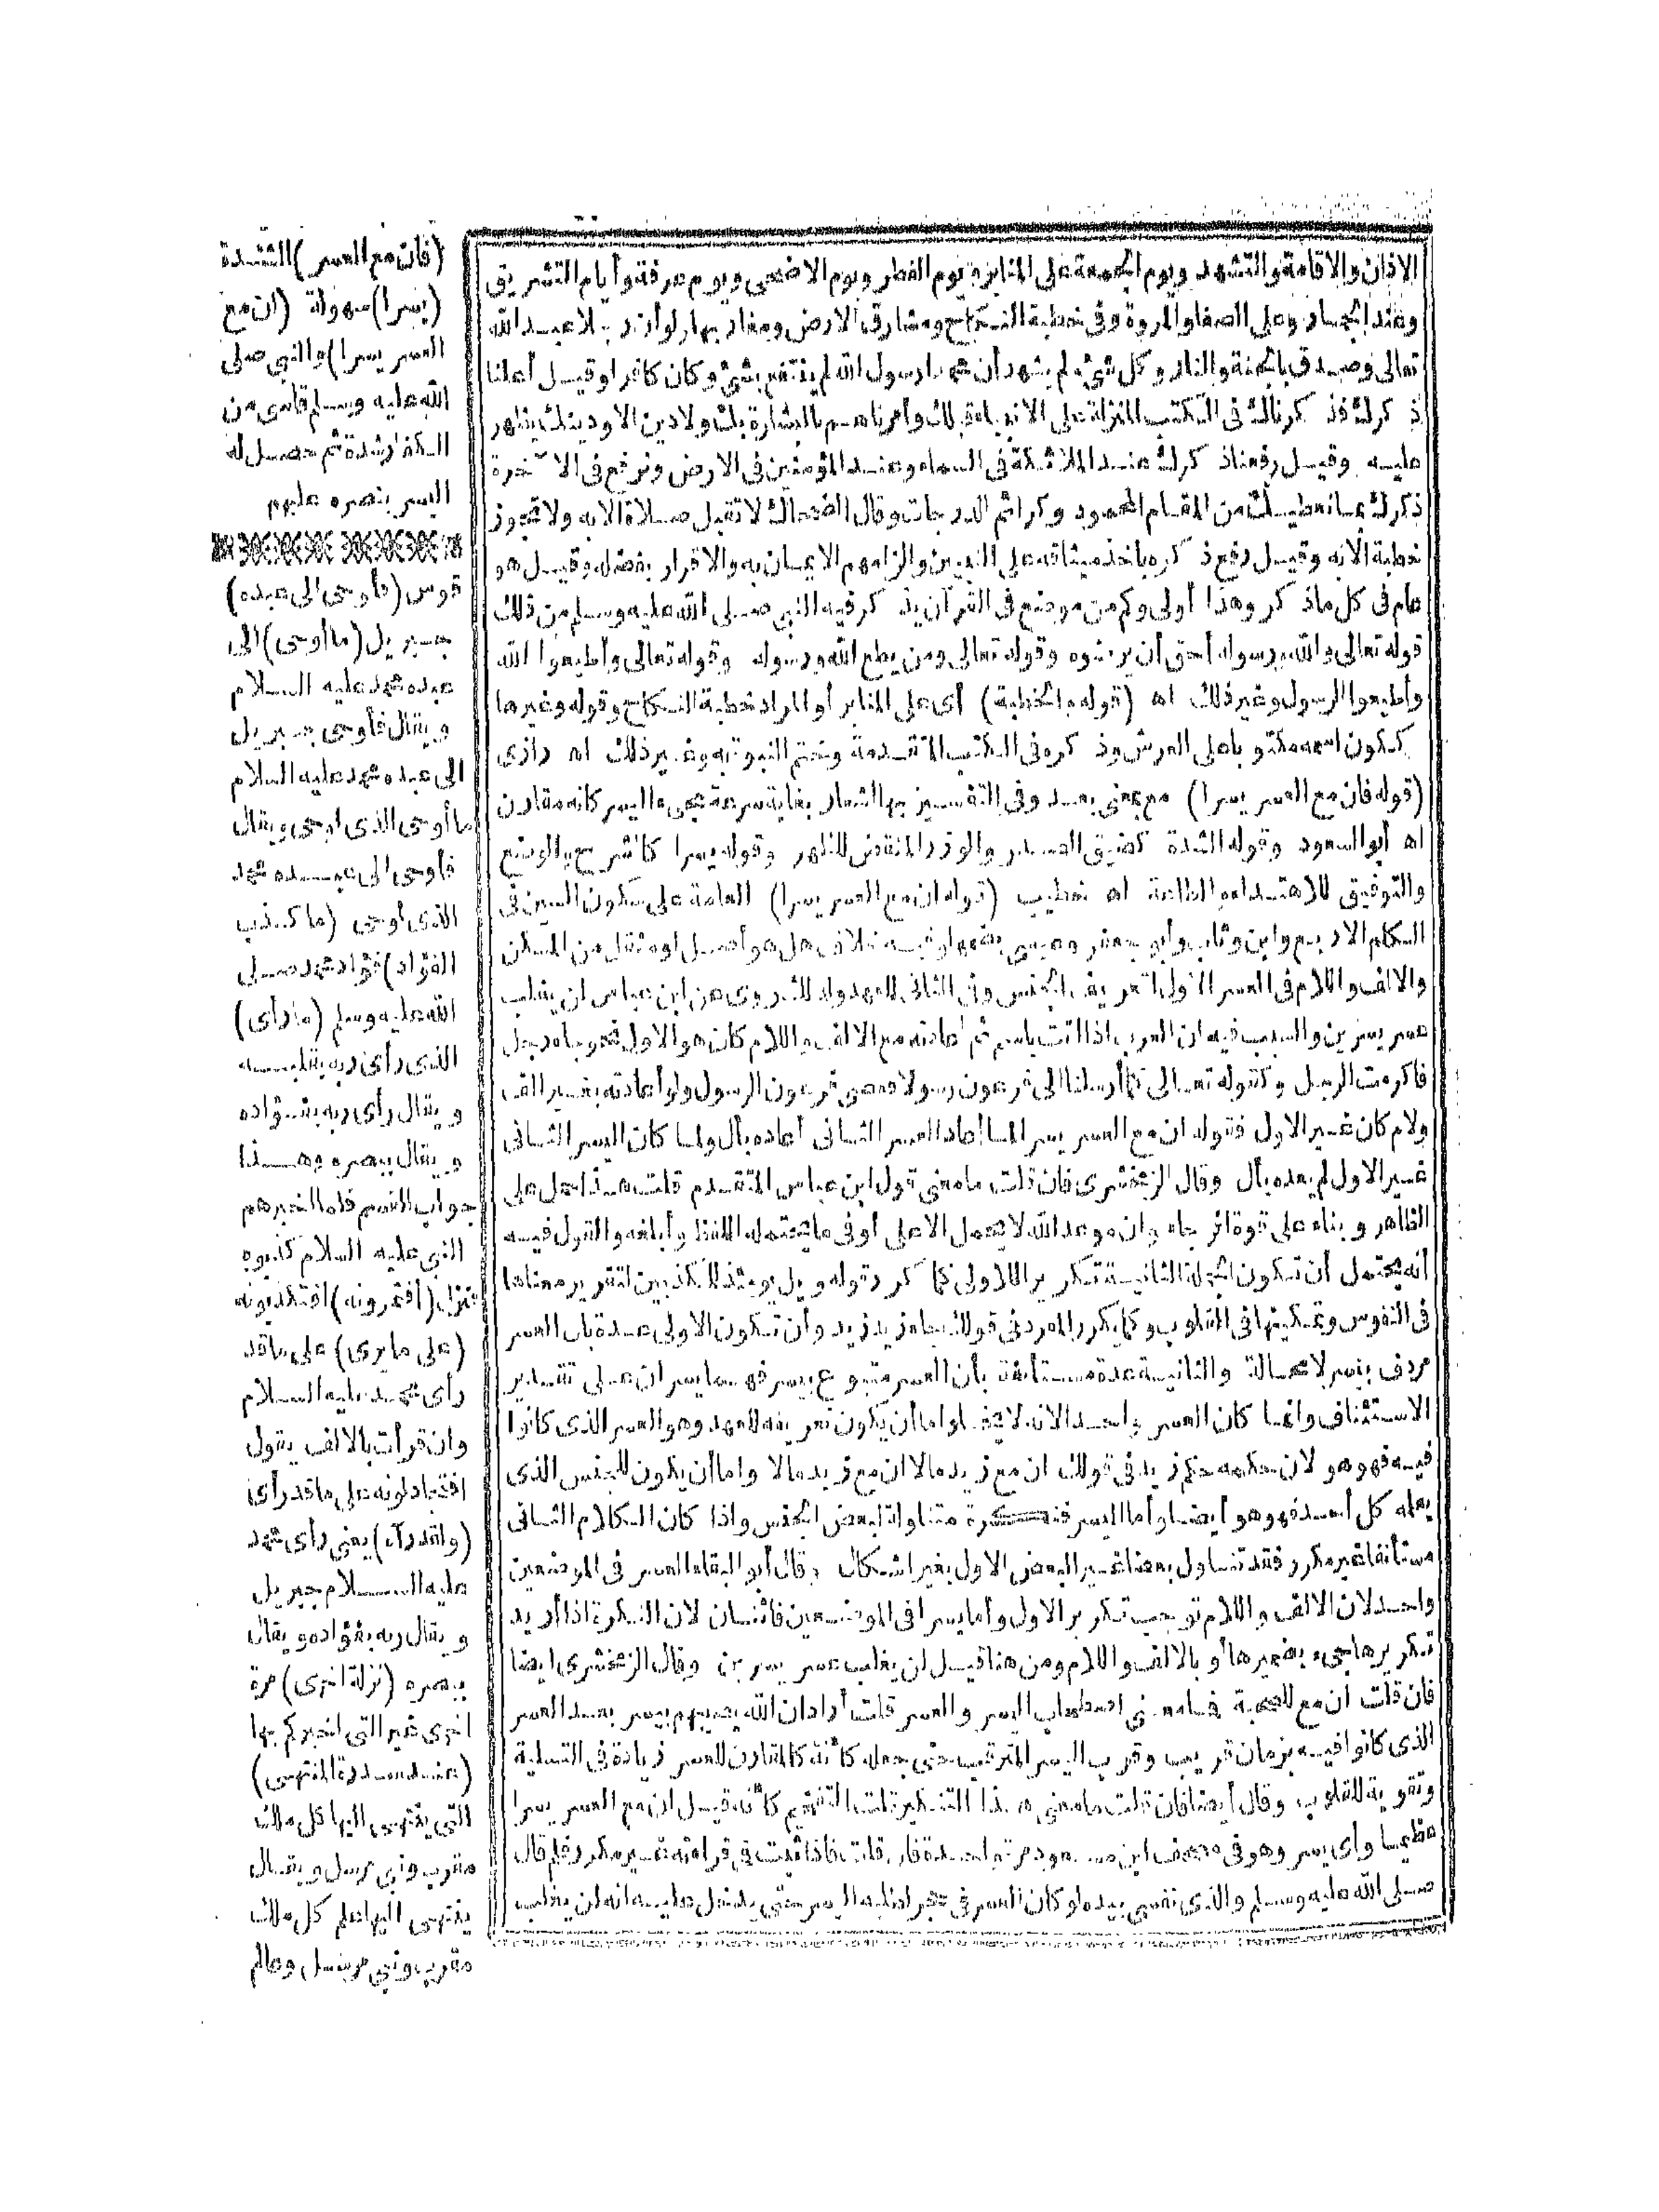 الاذان والاقامة والتشهد ويوم الجمعة على المنابر ويوم الفطر ويوم الاضحى ويوم عرفة وأيام التشريق
وعند الجمار وعلى الصفا والمروة وفى خطبة النكاح ومشارق الارض ومغاربها ولو أن رجلا عبد الله
تعالى وصدق بالجنة والنار وكل شئ ولم يشهد أن محمدا رسول الله لم ينتفع بشئ وكان كافرا وقيل أعلنا
ذكرك فذكرناك فى الكتب المنزلة على الانبياء قبلك وأمرناهم بالبشارة بك ولا دين الا ودينك يظهر
عليه وقيل رفعنا ذكرك عند الملائكة فى السماء وعند المؤمنين فى الارض ونرفع فى الآخرة
ذكرك بما نعطيك من المقام المحمود وكرائم الدرجات وقال الضحاك لا تقبل صلاة الا به ولا تجوز
خطبة الا به وقيل رفع ذكره بأخذ ميثاقه على النبيين والزامهم الايمان به والاقرار بفضله وقيل هو
عام فى كل ماذكر وهذا أولى وكم من موضع فى القرآن يذكر فيه النبى صلى الله عليه وسلم من ذلك
قوله تعالى والله ورسوله أحق أن يرضوه وقوله تعالى ومن يطع الله ورسوله وقوله تعالى وأطيعوا الله
وأطيعوا الرسول وغير ذلك اه (قوله والخطبة) أى على المنابر أو المراد خطبة النكاح وقوله وغيرها
ككون اسمه مكتوبا على العرش وذكره فى الكتب المتقدمة وختم النبوة به وغير ذلك اه رازى
(قوله فان مع العسر يسرا) مع بمعنى بعد وفى التفسير بها اشعار بغاية سرعة مجىء اليسر كانه مقارن
اه أبو السعود وقوله الشدة كضيق الصدر والوزر المنقض للظهر وقوله يسرا كالشرح والوضع
والتوفيق للاهتداء والطاعة اه خطيب (قوله ان مع العسر يسرا) العامة على سكون السين فى
الكلم الاربع وابن وثاب وأبو جعفر وعيسى بضمها وفيه خلاف هل هو أصل او مثقل من المسكن
والالف واللام فى العسر الاول لتعريف الجنس وفى الثانى للعهد ولذلك روى عن ابن عباس لن يغلب
عسر يسرين والسبب فيه ان العرب اذا اتت باسم ثم اعادته مع الالف واللام كان هو الاول نحو جاء رجل
فاكرمت الرجل وكقوله تعالى كما أرسلنا الى فرعون رسولا فعصى فرعون الرسول ولو أعادته بغير الف
ولام كان غير الاول فقوله ان مع العسر يسرا لما أعاد العسر الثانى أعاده بأل ولما كان اليسر الثانى
غير الاول لم يعده بأل وقال الزمخشرى فان قلت ما معنى قول ابن عباس المتقدم قلت هذا عمل على
الظاهر وبناء على قوة الرجاء وان موعد الله لا يحمل الا على أوفى ما يحتمله اللفظ وأبلغه والقول فيه
أنه يحتمل أن تكون الجملة الثانية تكريرا للاولى كما كرر قوله ويل يومئذ للمكذبين لتقرير معناها
فى النفوس وتمكينها فى القلوب وكما يكرر المفرد فى قولك جاء زيد زيد وأن تكون الاولى عدة بأن العسر
مردف بيسر لا محالة والثانية عدة مستأنفة بأن العسر متبوع بيسر فهما يسران على تقدير
الاستئناف وانما كان العسر واحدا لانه لا يخلو اما أن يكون تعريفه للعهد وهو العسر الذى كانوا
فيه فهو هو لان حكمه حكم زيد فى قولك ان مع زيد مالا ان مع زيد مالا واما أن يكون للجنس الذى
يعلمه كل أحد فهو هو أيضا وأما اليسر فنكرة متناولة لبعض الجنس واذا كان الكلام الثانى
مستأنفا غير مكرر فقد تناول بعضا غير البعض الاول بغير اشكال وقال أبو البقاء العسر فى الموضعين
واحد لان الالف واللام توجب تكرير الاول وأما يسرا فى الموضعين فاثنان لان النكرة اذا أريد
تكريرها جىء بضميرها أو بالالف واللام ومن هنا قيل لن يغلب عسر يسرين وقال الزمخشرى ايضا
فان قلت ان مع للصحبة فما معنى اصطحاب اليسر والعسر قلت أراد ان الله يصيبهم بيسر بعد العسر
الذى كانوا فيه بزمان قريب وقرب اليسر المترقب حتى جعله كأنه كالمقارن للعسر زيادة فى التسلية
وتقوية للقلوب وقال أيضا فان قلت ما معنى هذا التنكير قلت التفخيم كأنه قيل ان مع العسر يسرا
عظيما وأى يسر وهو فى مصحف ابن مسعود مرة واحدة فان قلت فاذا ثبت فى قراءته غير مكرر فلم قال
صلى الله عليه وسلم والذى نفسى بيده لو كان العسر فى جحر لطلبه اليسر حتى يدخل عليه انه لن يغلب
(فان مع العسر) الشدة
(يسرا) سهولة (ان مع
العسر يسرا) والنبى صلى
الله عليه وسلم قاسى من
الكفار شدة ثم حصل له
اليسر بنصره عليهم
قوس (فأوحى الى عبده)
جبريل (ما أوحى) الى
عبده محمد عليه السلام
ويقال فأوحى جبريل
الى عبده محمد عليه السلام
ما أوحى الذى اوحى ويقال
فأوحى الى عبده محمد
الذى أوحى (ما كذب
الفؤاد) فؤاد محمد صلى
الله عليه وسلم (ما رأى)
الذى رأى ربه بقلبه
ويقال رأى ربه بفؤاده
ويقال ببصره وهذا
جواب القسم فلما اخبرهم
النبى عليه السلام كذبوه
فنزل (أفتمرونه) افتكذبونه
(على ما يرى) على ما قد
رأى محمد عليه السلام
وان قرأت بالالف يقول
افتجادلونه على ما قد رأى
(ولقد رآه) يعنى رأى محمد
عليه السلام جبريل
ويقال ربه بفؤاده ويقال
ببصره (نزلة اخرى) مرة
اخرى غير التى اخبركم بها
(عند سدرة المنتهى)
التى ينتهى اليها كل ملك
مقرب ونبى مرسل ويقال
ينتهى اليها علم كل ملك
مقرب ونبى مرسل وعالم